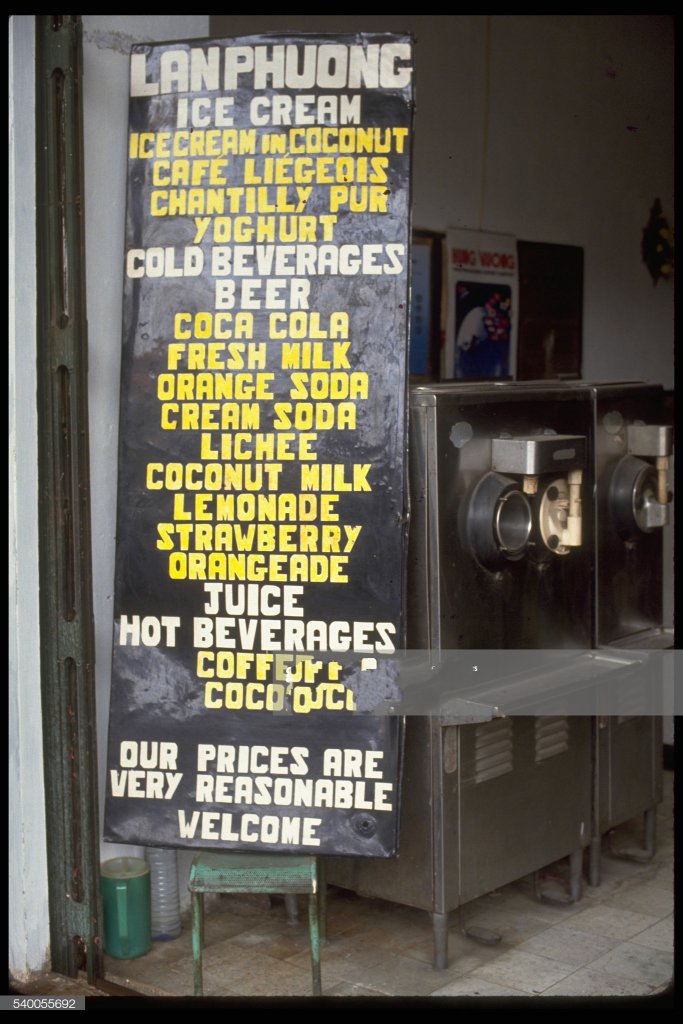 LAN PHUONG
ICE CREAM
ICE CREAM IN COCONUT
CAFÉ LIÉGEOIS
CHANTILLY PUR
YOGHURT
COLD BEVERAGES
BEER
COCA COLA
FRESH MILK
ORANGE SODA
CREAM SODA
LICHEE
COCONUT MILK
LEMONADE
STRAWBERRY
ORANGEADE
JUICE
HOT BEVERAGES
OUR PRICES ARE
VERY REASONABLE
WELCOME
540055692